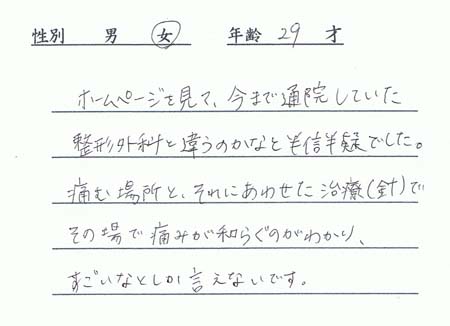 性別 男 女 年齢 29 才
ホームページを見て、今まで通院していた
整形外科と違うのかなと半信半疑でした。
痛む場所と、それにあわせた治療(針)で
その場で痛みが和らぐのがわかり、
すごいなとしか言えないです。